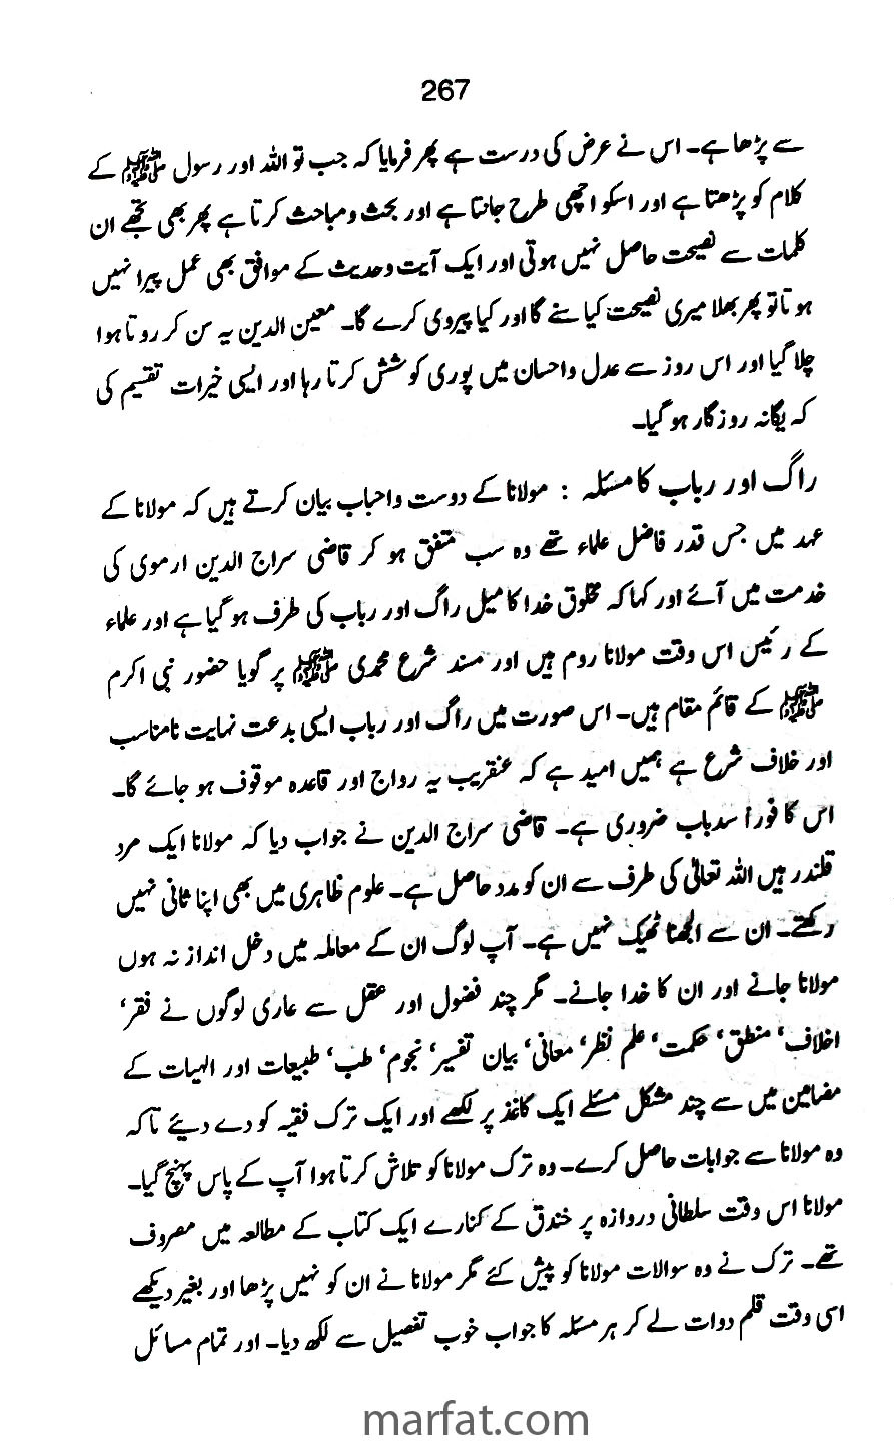 267
سے پڑھا ہے۔ اس نے عرض کی درست ہے پھر فرمایا کہ جب تو اللہ اور رسول ﷺ کے
کلام کو پڑھتا ہے اور اسکو اچھی طرح جانتا ہے اور بحث و مباحث کرتا ہے پھر بھی تجھے ان
کلمات سے نصیحت حاصل نہیں ہوتی اور ایک آیت و حدیث کے موافق بھی عمل پیرا نہیں
ہوتا تو پھر بھلا میری نصیحت کیا سنے گا اور کیا پیروی کرے گا۔ معین الدین یہ سن کر روتا ہوا
چلا گیا اور اس روز سے عدل و احسان میں پوری کوشش کرتا رہا اور ایسی خیرات تقسیم کی
کہ یگانہ روزگار ہو گیا۔
راگ اور رباب کا مسئلہ : مولانا کے دوست و احباب بیان کرتے ہیں کہ مولانا کے
عہد میں جس قدر فاضل علماء تھے وہ سب متفق ہو کر قاضی سراج الدین ارموی کی
خدمت میں آئے اور کہا کہ مخلوق خدا کا میل راگ اور رباب کی طرف ہو گیا ہے اور علماء
کے رئیس اس وقت مولانا روم ہیں اور مسند شرع محمدی ﷺ پر گویا حضور نبی اکرم
ﷺ کے قائم مقام ہیں۔ اس صورت میں راگ اور رباب ایسی بدعت نہایت نامناسب
اور خلاف شرع ہے ہمیں امید ہے کہ عنقریب یہ رواج اور قاعدہ موقوف ہو جائے گا۔
اس کا فوراً سدباب ضروری ہے۔ قاضی سراج الدین نے جواب دیا کہ مولانا ایک مرد
قلندر ہیں اللہ تعالیٰ کی طرف سے ان کو مدد حاصل ہے۔ علوم ظاہری میں بھی اپنا ثانی نہیں
رکھتے۔ ان سے الجھنا ٹھیک نہیں ہے۔ آپ لوگ ان کے معاملہ میں دخل انداز نہ ہوں
مولانا جانے اور ان کا خدا جانے۔ مگر چند فضول اور عقل سے عاری لوگوں نے فقر‘
اخلاف‘ منطق‘ حکمت‘ علم نظر‘ معانی‘ بیان تفسیر‘ نجوم‘ طب‘ طبیعات اور الہیات کے
مضامین میں سے چند مشکل مسئلے ایک کاغذ پر لکھے اور ایک ترک فقیہ کو دے دیئے تاکہ
وہ مولانا سے جوابات حاصل کرے۔ وہ ترک مولانا کو تلاش کرتا ہوا آپ کے پاس پہنچ گیا۔
مولانا اس وقت سلطانی دروازہ پر خندق کے کنارے ایک کتاب کے مطالعہ میں مصروف
تھے۔ ترک نے وہ سوالات مولانا کو پیش کئے مگر مولانا نے ان کو نہیں پڑھا اور بغیر دیکھے
اسی وقت قلم دوات لے کر ہر مسئلہ کا جواب خوب تفصیل سے لکھ دیا۔ اور تمام مسائل
marfat.com